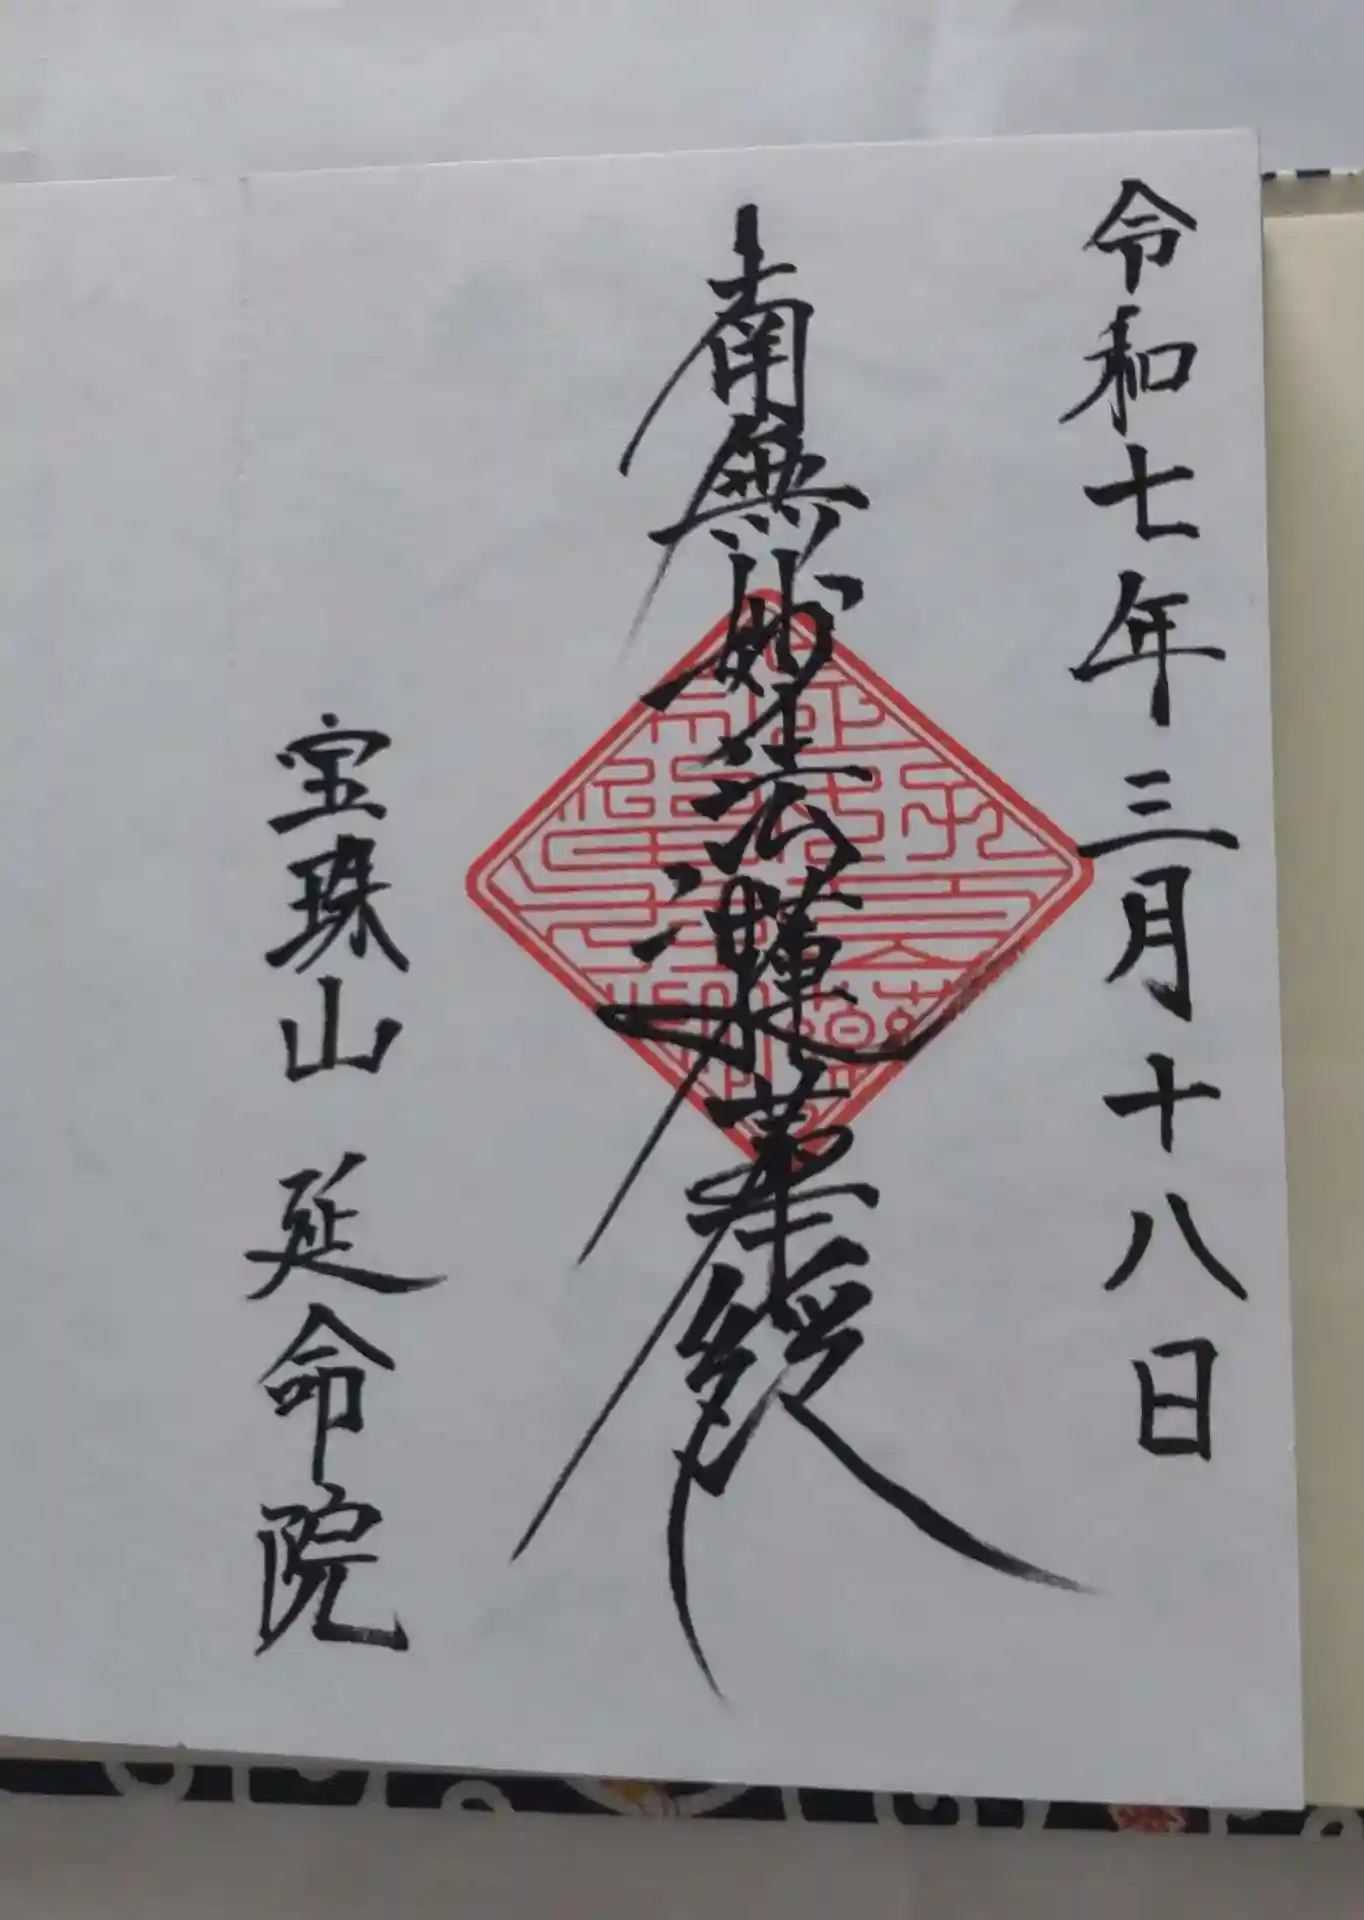 令和七年三月十八日
南無妙法蓮華経
宝珠山 延命院